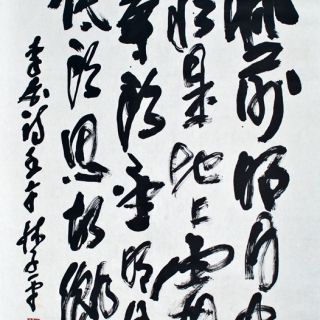 床前明月光
疑是地上霜
举頭望明月
低頭思故鄉
李白詩